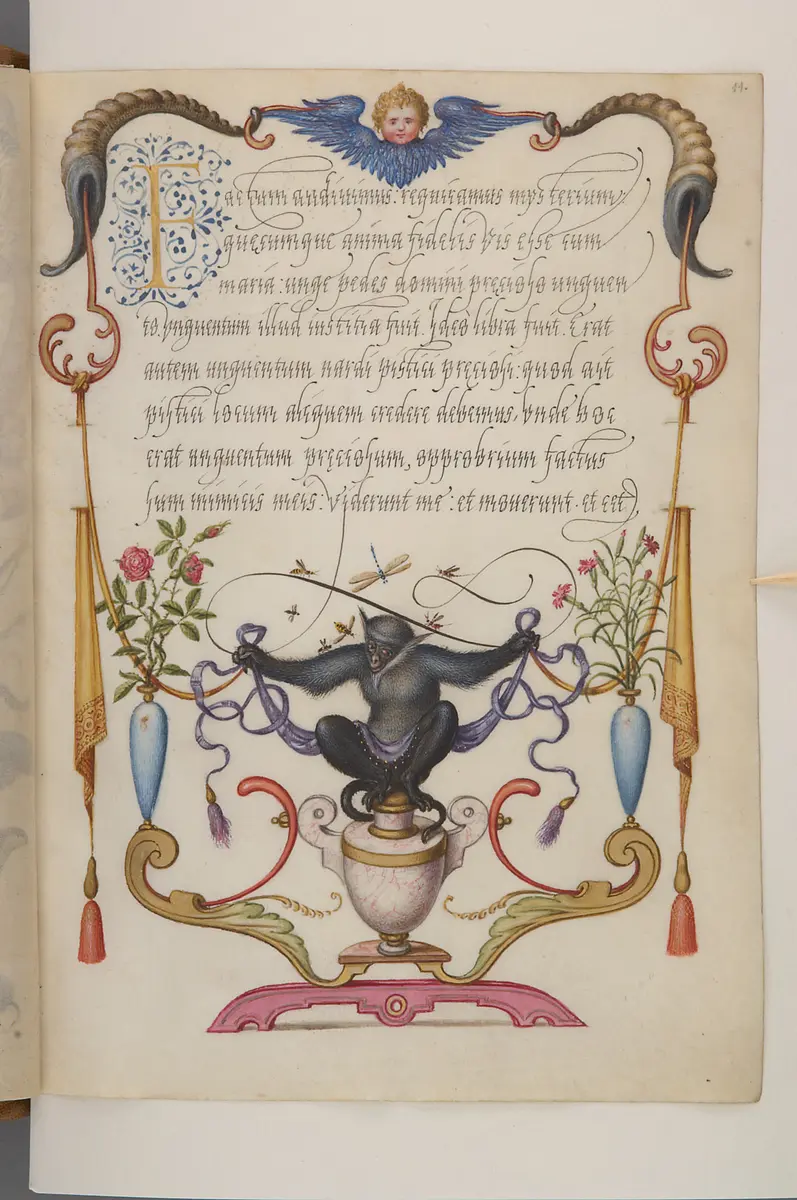 11.
Factum audiuimus: requiramus mysterium:
quęcumque anima fidelis vis esse cum
maria: unge pedes domini pręcioso unguen
to. Vnguentum illud iustitia fuit. Ideo libra fuit. Erat
autem unguentum nardi pistici pręciosi: quod ait
pistici locum aliquem credere debemus, vnde hoc
erat unguentum pręciosum, opprobrium factus
sum inimicis meis: Viderunt me: et mouerunt. et cet